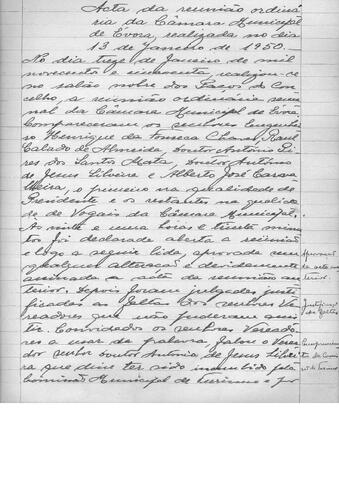 Acta da reunião ordiná-
ria da Câmara Municipal
de Évora, realizada no dia
13 de Janeiro de 1950.
No dia treze de Janeiro de mil
novecentos e cincoenta realizou-se
no salão nobre dos Paços do Con-
celho, a reunião ordinária sema-
nal da Câmara Municipal de Évora.
Compareceram os senhores Engenhei-
ro Henrique da Fonseca Chaves, Raul
Calado de Almeida, Doutor António Pi-
res dos Santos Mata, Doutor António
de Jesus Silveira e Alberto José Carava
Vieira, o primeiro na qualidade de
Presidente e os restantes na qualida-
de de Vogais da Câmara Municipal.
Às vinte e uma horas e trinta minu-
tos foi declarada aberta a reunião
e logo a seguir lida, aprovada sem
qualquer alteração e devidamente
assinada a acta da reunião an-
terior. Depois foram julgadas justi-
ficadas as faltas dos senhores Ve-
readores que não puderam assis-
tir. Convidados os senhores Vereado-
res a usar da palavra, falou o Verea-
dor senhor Doutor António de Jesus Silvei-
ra que disse ter sido incumbido pela
Comissão Municipal de Turismo e por
Aprovação
da acta an-
terior.
Justificação
de faltas